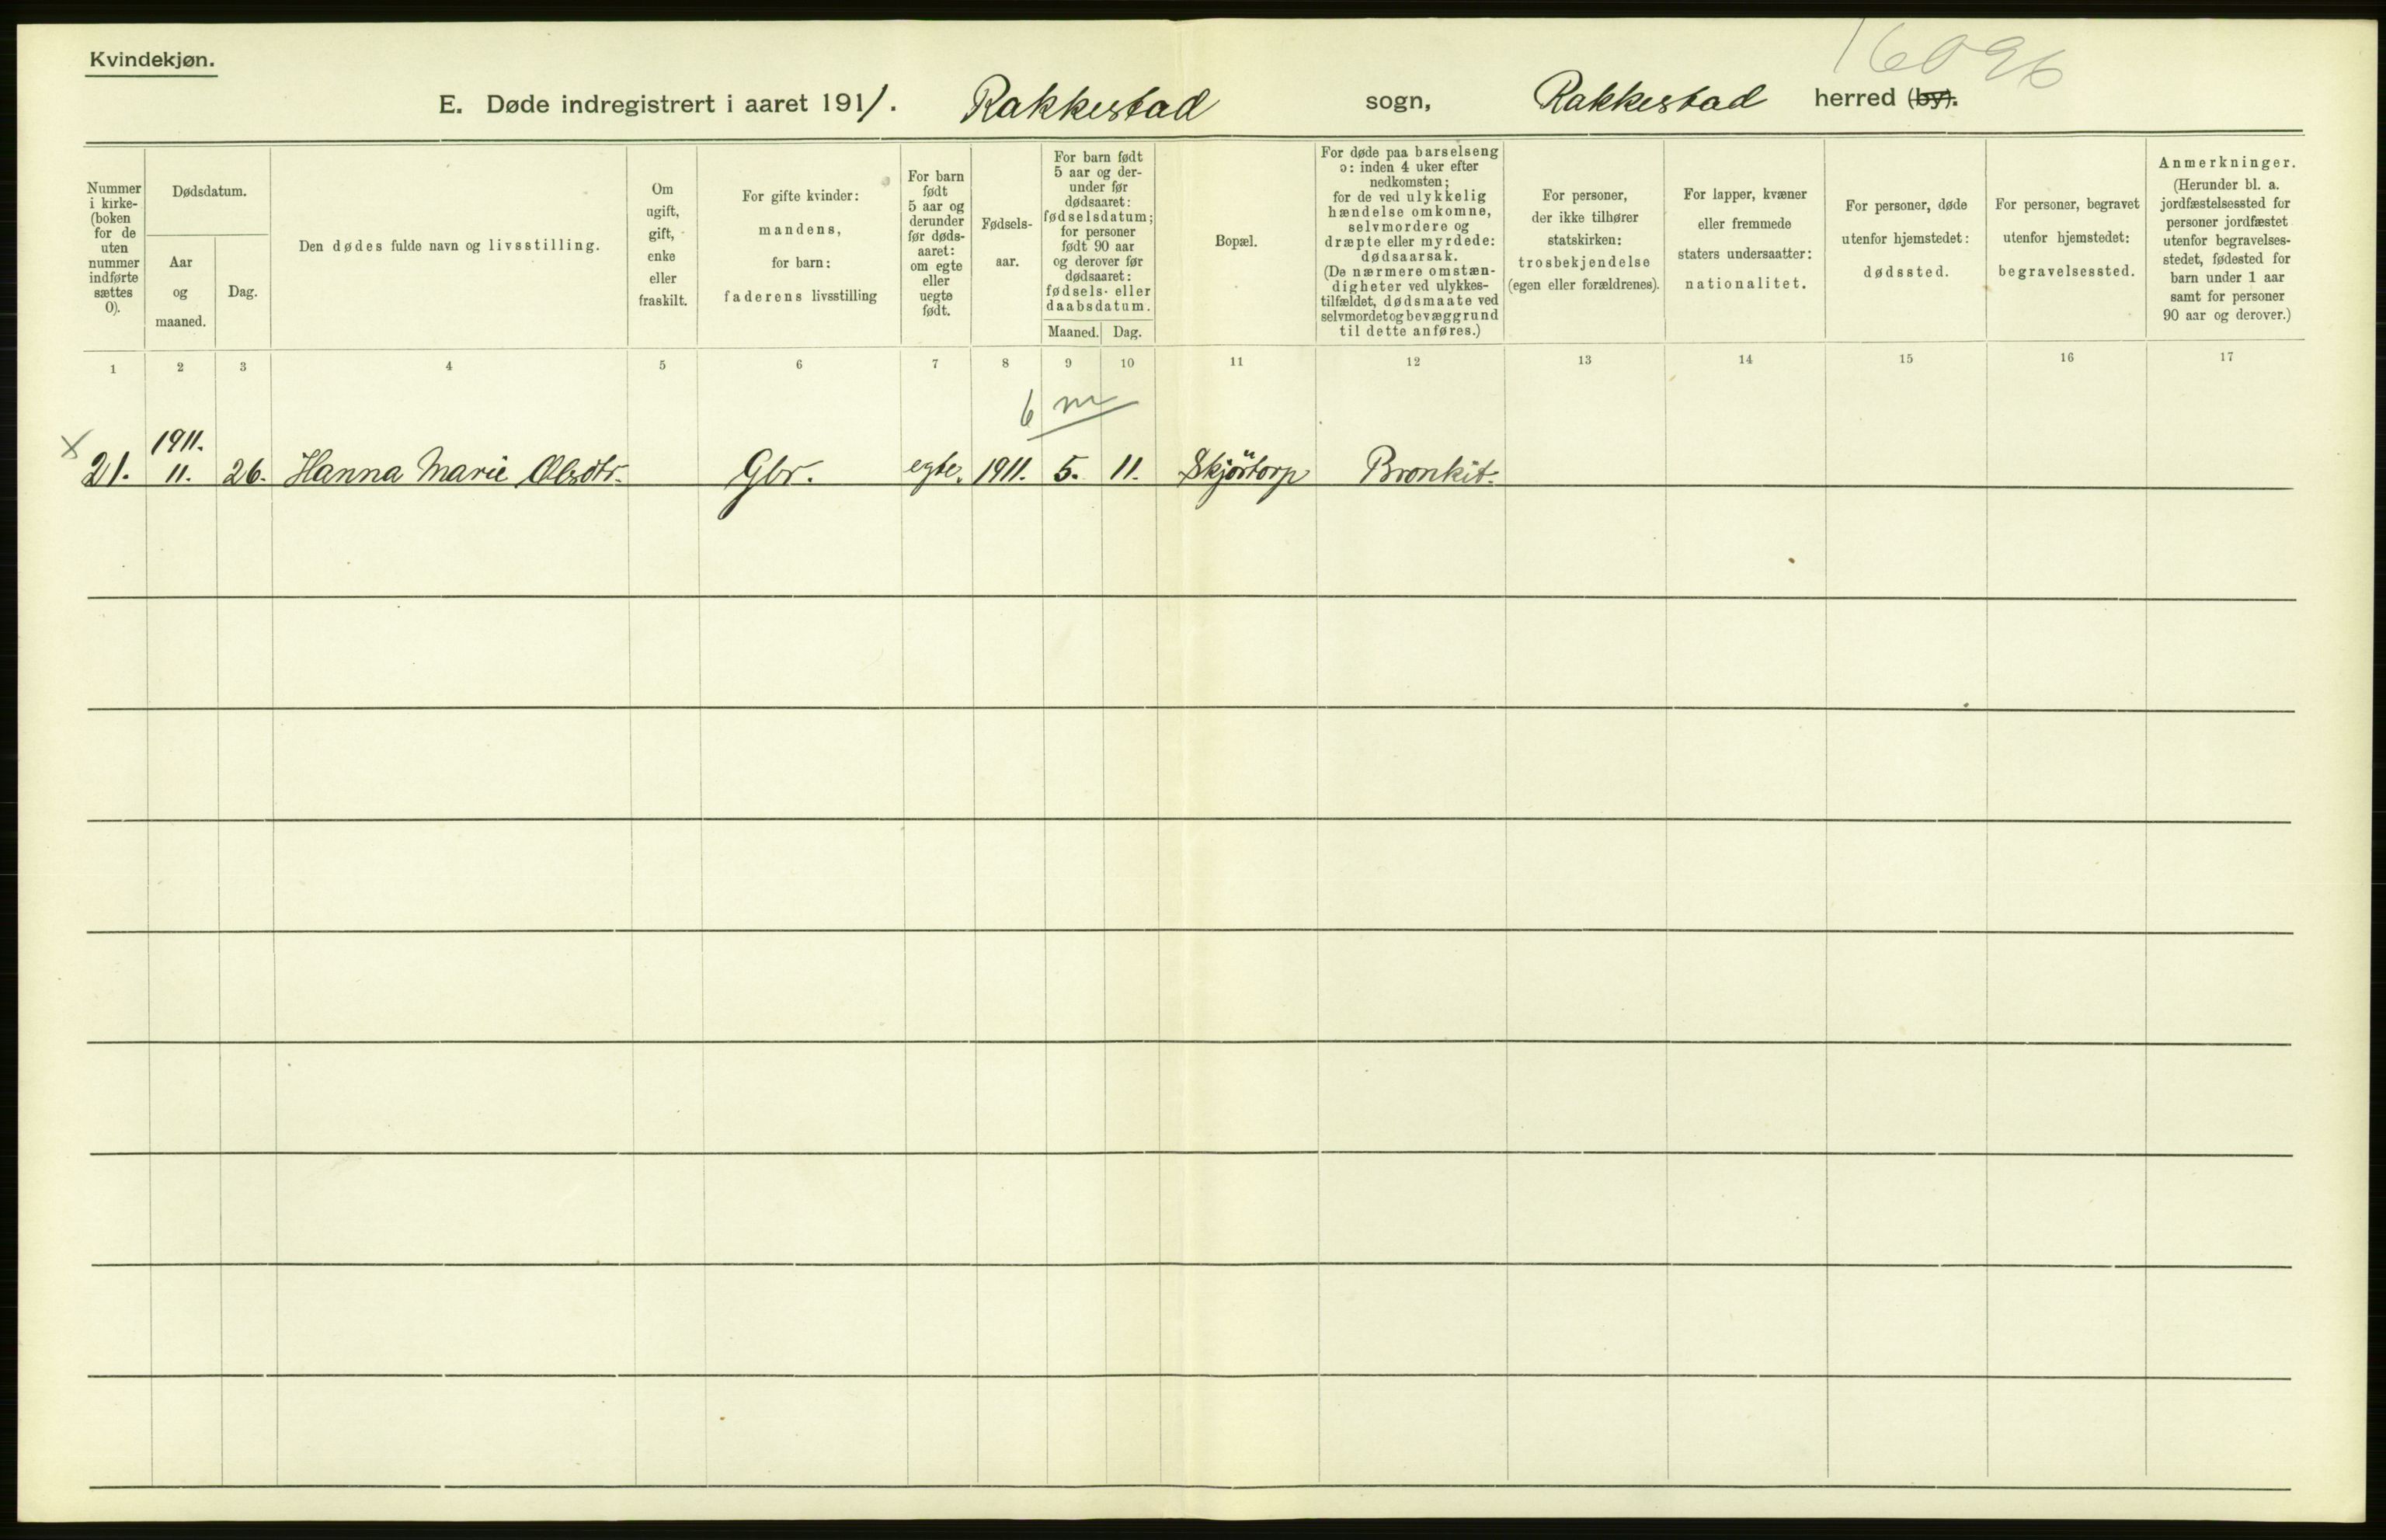 16096
Kvindekjøn.
E. Døde indregistrert i aaret 1911. Rakkestad sogn, Rakkestad herred (by).
Nummer
i kirke-
(boken
for de
uten
nummer
indførte
sættes
0).
Dødsdatum.
Aar
og
maaned.
Dag.
Den dødes fulde navn og livsstilling.
Om
ugift,
gift,
enke
eller
fraskilt.
For gifte kvinder:
mandens,
for barn:
faderens livsstilling
For barn
født
5 aar og
derunder
før døds-
aaret:
om egte
eller
uegte
født.
Fødsels-
aar.
For barn født
5 aar og der-
under før
dødsaaret:
fødselsdatum;
for personer
født 90 aar
og derover før
dødsaaret:
fødsels- eller
daabsdatum.
Maaned. Dag.
Bopæl.
For døde paa barselseng
ɔ: inden 4 uker efter
nedkomsten;
for de ved ulykkelig
hændelse omkomne,
selvmordere og
dræpte eller myrdede:
dødsaarsak.
(De nærmere omstæn-
digheter ved ulykkes-
tilfældet, dødsmaate ved
selvmordet og bevæggrund
til dette anføres.)
For personer,
der ikke tilhører
statskirken:
trosbekjendelse
(egen eller forældrenes).
For lapper, kvæner
eller fremmede
staters undersaatter:
nationalitet.
For personer, døde
utenfor hjemstedet:
dødssted.
For personer, begravet
utenfor hjemstedet:
begravelsessted.
Anmerkninger.
(Herunder bl. a.
jordfæstelsessted for
personer jordfæstet
utenfor begravelses-
stedet, fødested for
barn under 1 aar
samt for personer
90 aar og derover.)
1 2 3 4 5 6 7 8 9 10 11 12 13 14 15 16 17
6 m
1911.
x 21. 11. 26. Hanna Marie Olsdtr. Gbr. egte. 1911. 5. 11. Skjörtorp Bronkit.